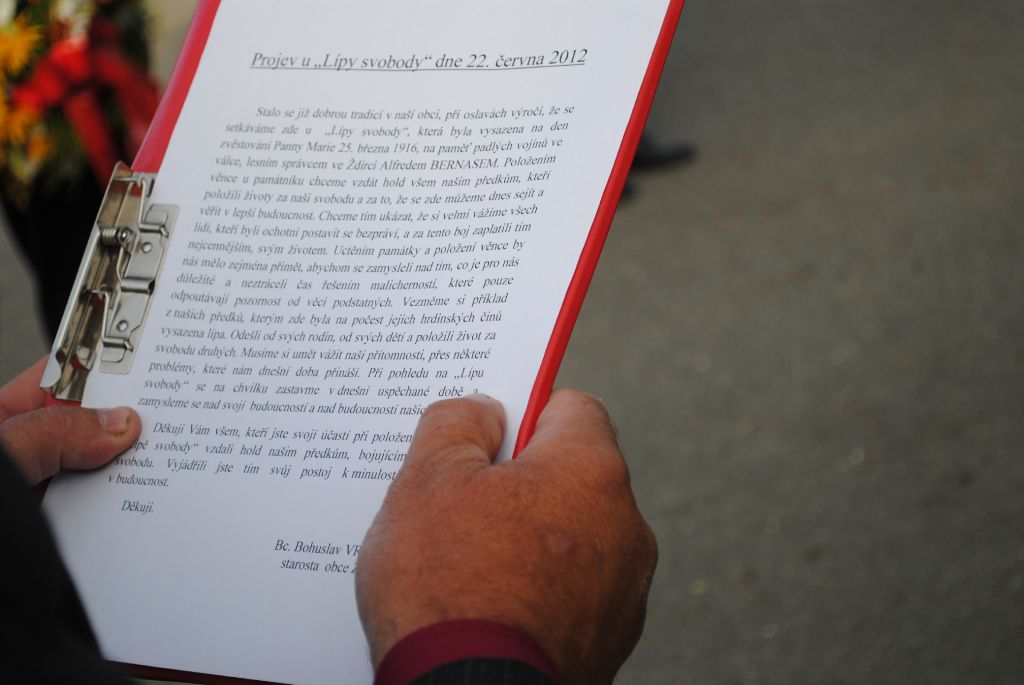 Projev u „Lípy svobody“ dne 22. června 2012
Stalo se již dobrou tradicí v naší obci, při oslavách výročí, že se
setkáváme zde u „Lípy svobody“, která byla vysazena na den
zvěstování Panny Marie 25. března 1916, na paměť padlých vojínů ve
válce, lesním správcem ve Ždírci Alfredem BERNASEM. Položením
věnce u památníku chceme vzdát hold všem našim předkům, kteří
položili životy za naši svobodu a za to, že se zde můžeme dnes sejít a
věřit v lepší budoucnost. Chceme tím ukázat, že si velmi vážíme všech
lidí, kteří byli ochotni postavit se bezpráví, a za tento boj zaplatili tím
nejcennějším, svým životem. Uctěním památky a položení věnce by
nás mělo zejména přimět, abychom se zamysleli nad tím, co je pro nás
důležité a neztráceli čas řešením malicherností, které pouze
odpoutávají pozornost od věcí podstatných. Vezměme si příklad
z našich předků, kterým zde byla na počest jejich hrdinských činů
vysazena lípa. Odešli od svých rodin, od svých dětí a položili život za
svobodu druhých. Musíme si umět vážit naší přítomnosti, přes některé
problémy, které nám dnešní doba přináší. Při pohledu na „Lípu
svobody“ se na chvilku zastavme v dnešní uspěchané době a
zamysleme se nad svojí budoucností a nad budoucností
Děkuji Vám všem, kteří jste svojí účastí při
svobody“ vzdali hold našim předkům, bojujícím
svobodu. Vyjádřili jste tím svůj postoj k
v budoucnost.
Děkuji.
Bc. Bohuslav
starosta obce